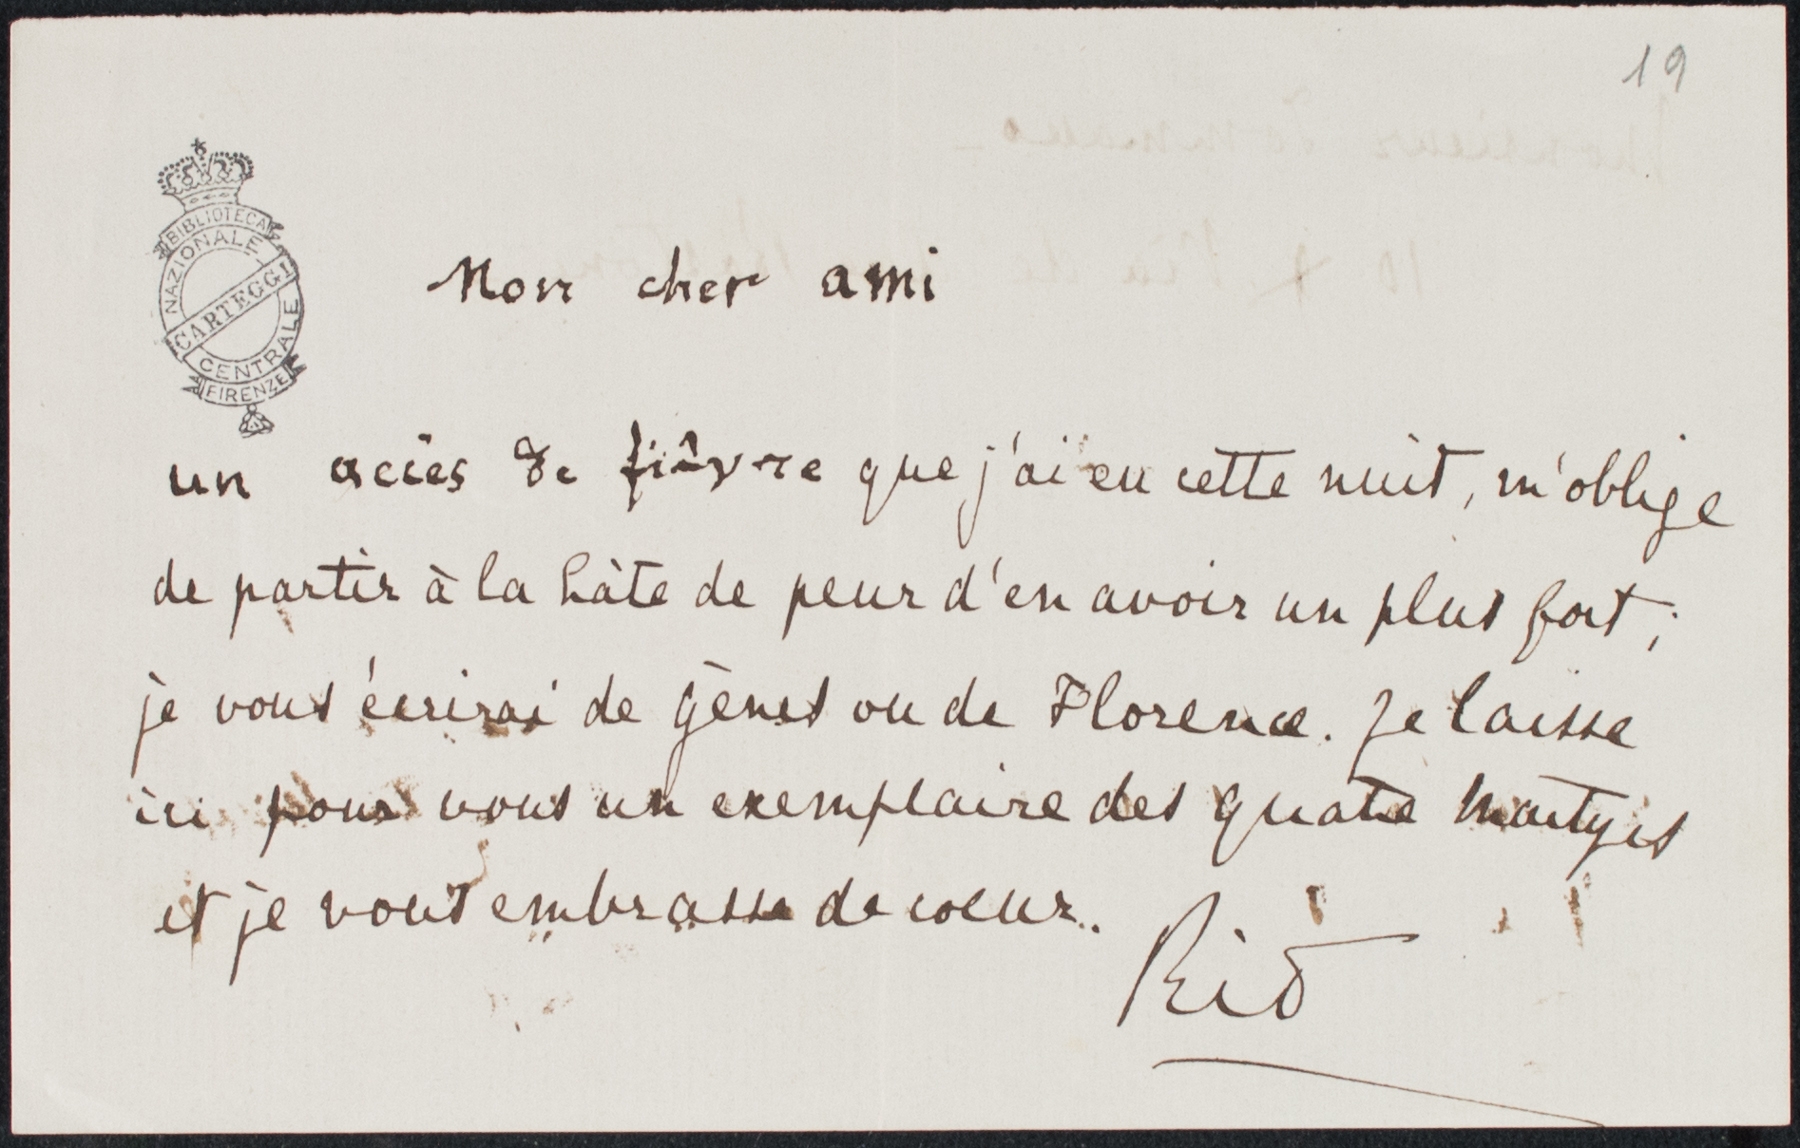 19
BIBLIOTECA
NAZIONALE
CARTEGGI
CENTRALE
FIRENZE
Mon cher ami
un accès de fièvre que j'ai eu cette nuit, m'oblige
de partir à la hâte de peur d'en avoir un plus fort;
je vous écrirai de Gènes ou de Florence. Je laisse
ici pour vous un exemplaire des quatre Martyrs
et je vous embrasse de coeur.
Rio